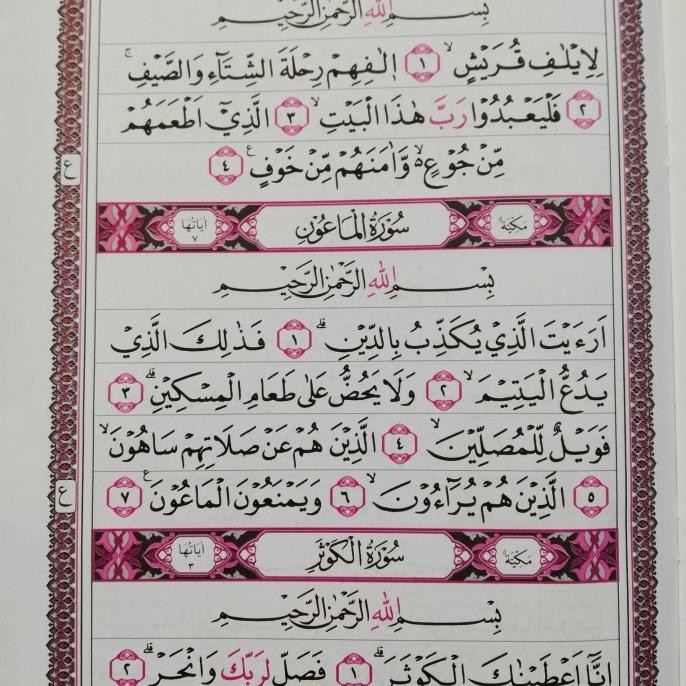 بِسْمِ اللّٰهِ الرَّحْمٰنِ الرَّحِيْمِ
لِاِيْلٰفِ قُرَيْشٍۙ ١ اٖلٰفِهِمْ رِحْلَةَ الشِّتَٓاءِ وَالصَّيْفِۚ
٢ فَلْيَعْبُدُوا رَبَّ هٰذَا الْبَيْتِۙ ٣ اَلَّذٖٓي اَطْعَمَهُمْ
مِنْ جُوعٍۙ وَاٰمَنَهُمْ مِنْ خَوْفٍ ٤
ع
مَكِّيَّة سُورَةُ الْمَاعُونِ اٰيَاتُهَا ٧
بِسْمِ اللّٰهِ الرَّحْمٰنِ الرَّحِيْمِ
اَرَءَيْتَ الَّذٖي يُكَذِّبُ بِالدّٖينِۜ ١ فَذٰلِكَ الَّذٖي
يَدُعُّ الْيَتٖيمَۙ ٢ وَلَا يَحُضُّ عَلٰى طَعَامِ الْمِسْكٖينِۜ ٣
فَوَيْلٌ لِلْمُصَلّٖينَۙ ٤ اَلَّذٖينَ هُمْ عَنْ صَلَاتِهِمْ سَاهُونَۙ
٥ اَلَّذٖينَ هُمْ يُرَٓاؤُ۫نَۙ ٦ وَيَمْنَعُونَ الْمَاعُونَ ٧
ع
مَكِّيَّة سُورَةُ الْكَوْثَرِ اٰيَاتُهَا ٣
بِسْمِ اللّٰهِ الرَّحْمٰنِ الرَّحِيْمِ
اِنَّٓا اَعْطَيْنَاكَ الْكَوْثَرَۜ ١ فَصَلِّ لِرَبِّكَ وَانْحَرْۜ ٢